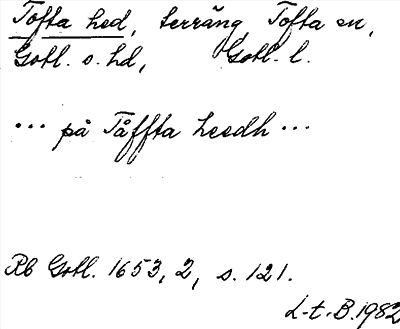 Tofta hed, terräng Tofta sn,
Gotl. s. hd, Gotl. l.
... på Tåffta heedh ...
Rb Gotl. 1653, 2, s. 121.
L-t-B. 1982